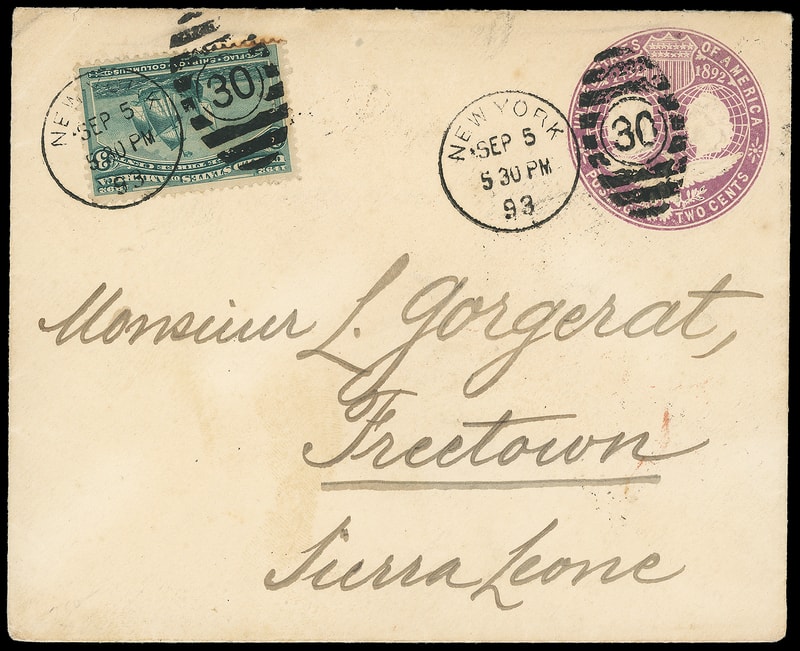 FLAG-SHIP OF COLUMBUS
1492 STATES OF AMERICA 1892
NEW
SEP 5
5 30 PM
93
30
NEW YORK
SEP 5
5 30 PM
93
30
OF AMERICA
1892
TWO CENTS
Monsieur L. Gorgerat,
Freetown
Sierra Leone